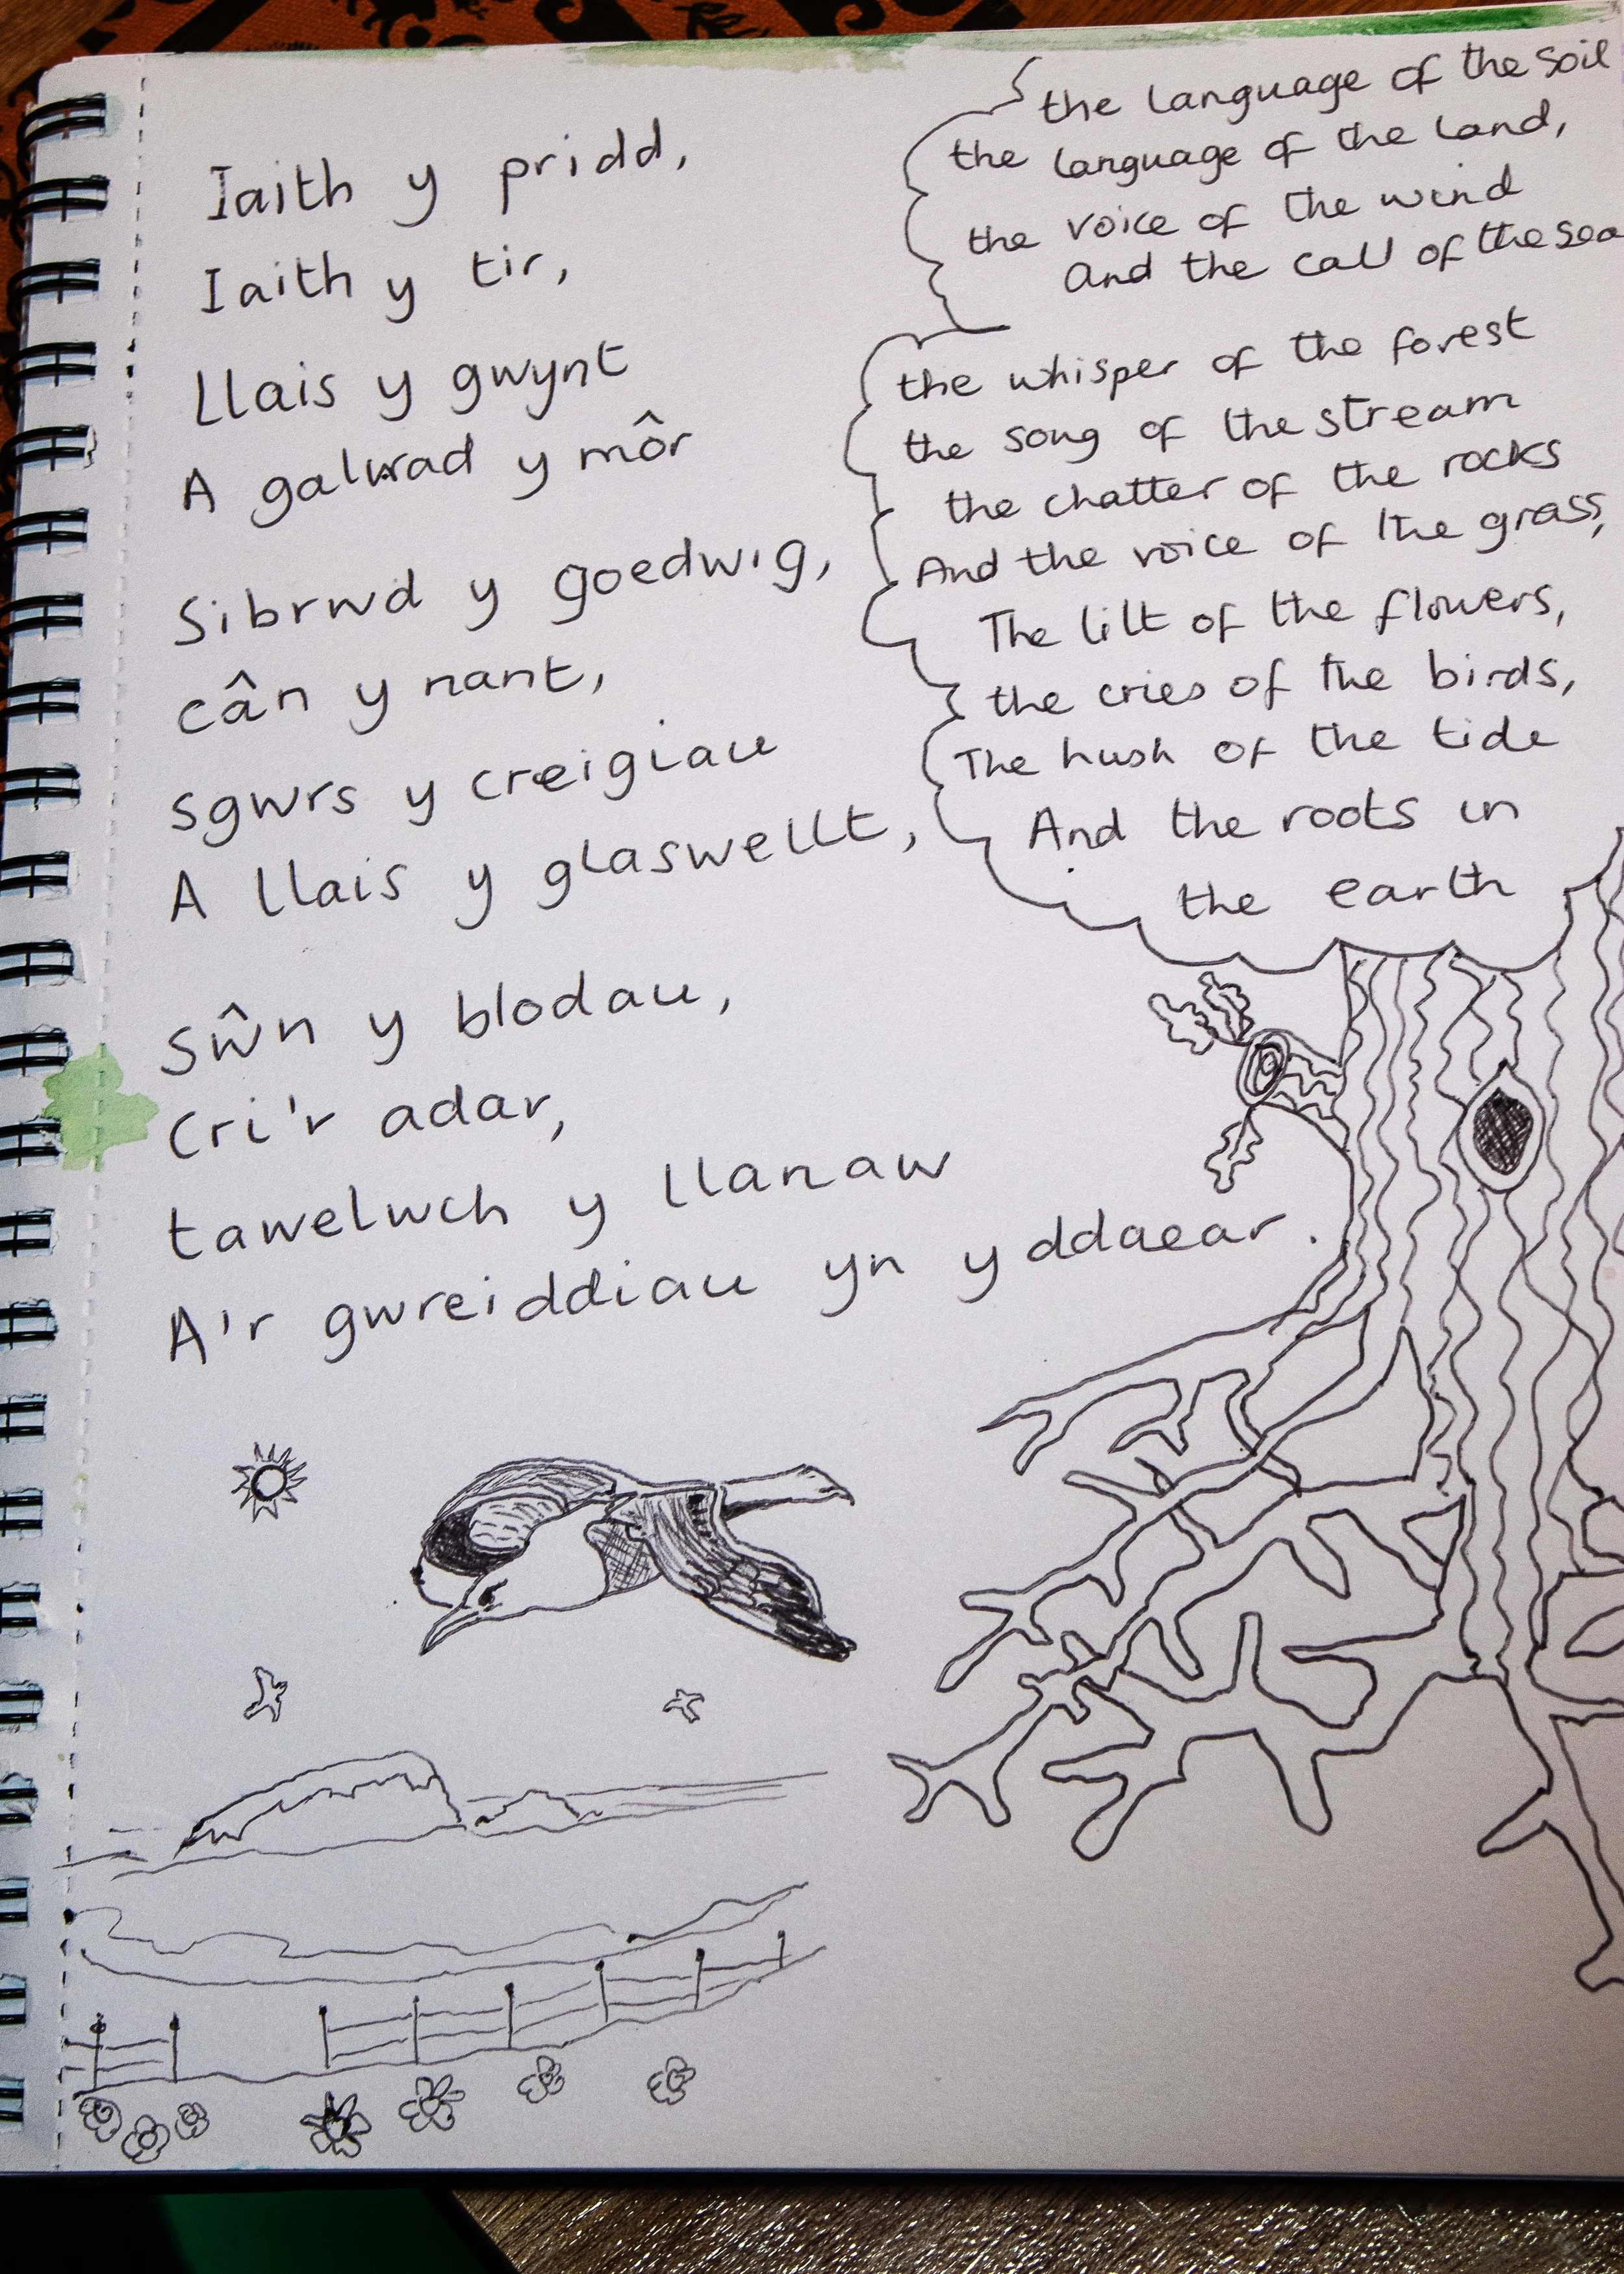 Iaith y pridd,
Iaith y tir,
Llais y gwynt
A galwad y môr
Sibrwd y goedwig,
cân y nant,
sgwrs y creigiau
A llais y glaswellt,
Sŵn y blodau,
Cri'r adar,
tawelwch y llanaw
A'r gwreiddiau yn y ddaear.
the language of the soil
the language of the land,
the voice of the wind
And the call of the sea
the whisper of the forest
the song of the stream
the chatter of the rocks
And the voice of the grass,
The lilt of the flowers,
the cries of the birds,
The hush of the tide
And the roots in
the earth